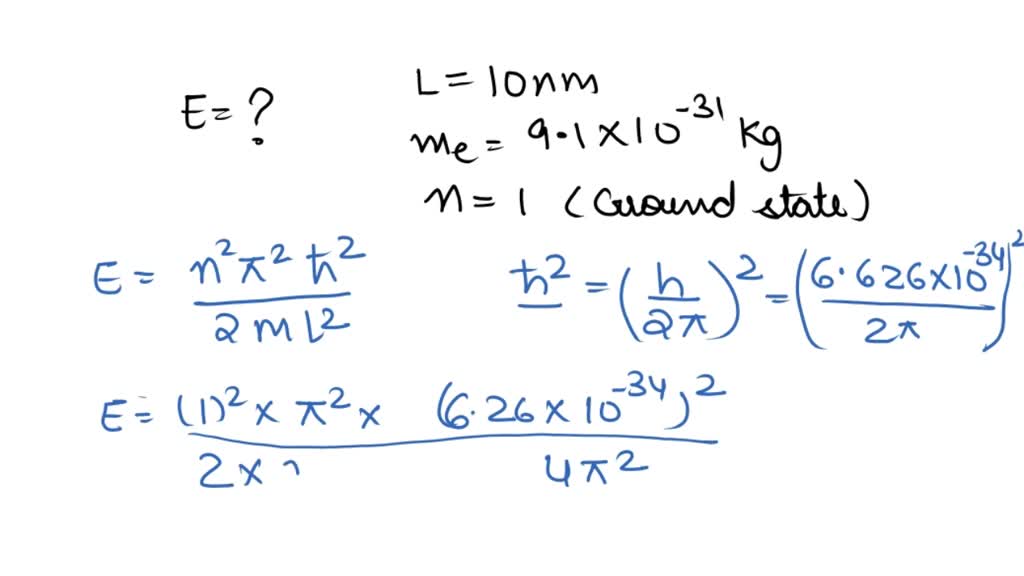 E = ?
L = 10nm
me = 9.1 × 10^-31 Kg
n = 1 (Ground state)
E = n²π²ħ² / 2mL²
ħ² = (h / 2π)² = (6.626×10^-34 / 2π)²
E = (1)² × π² × (6.26 × 10^-34)²
2 × 4π²